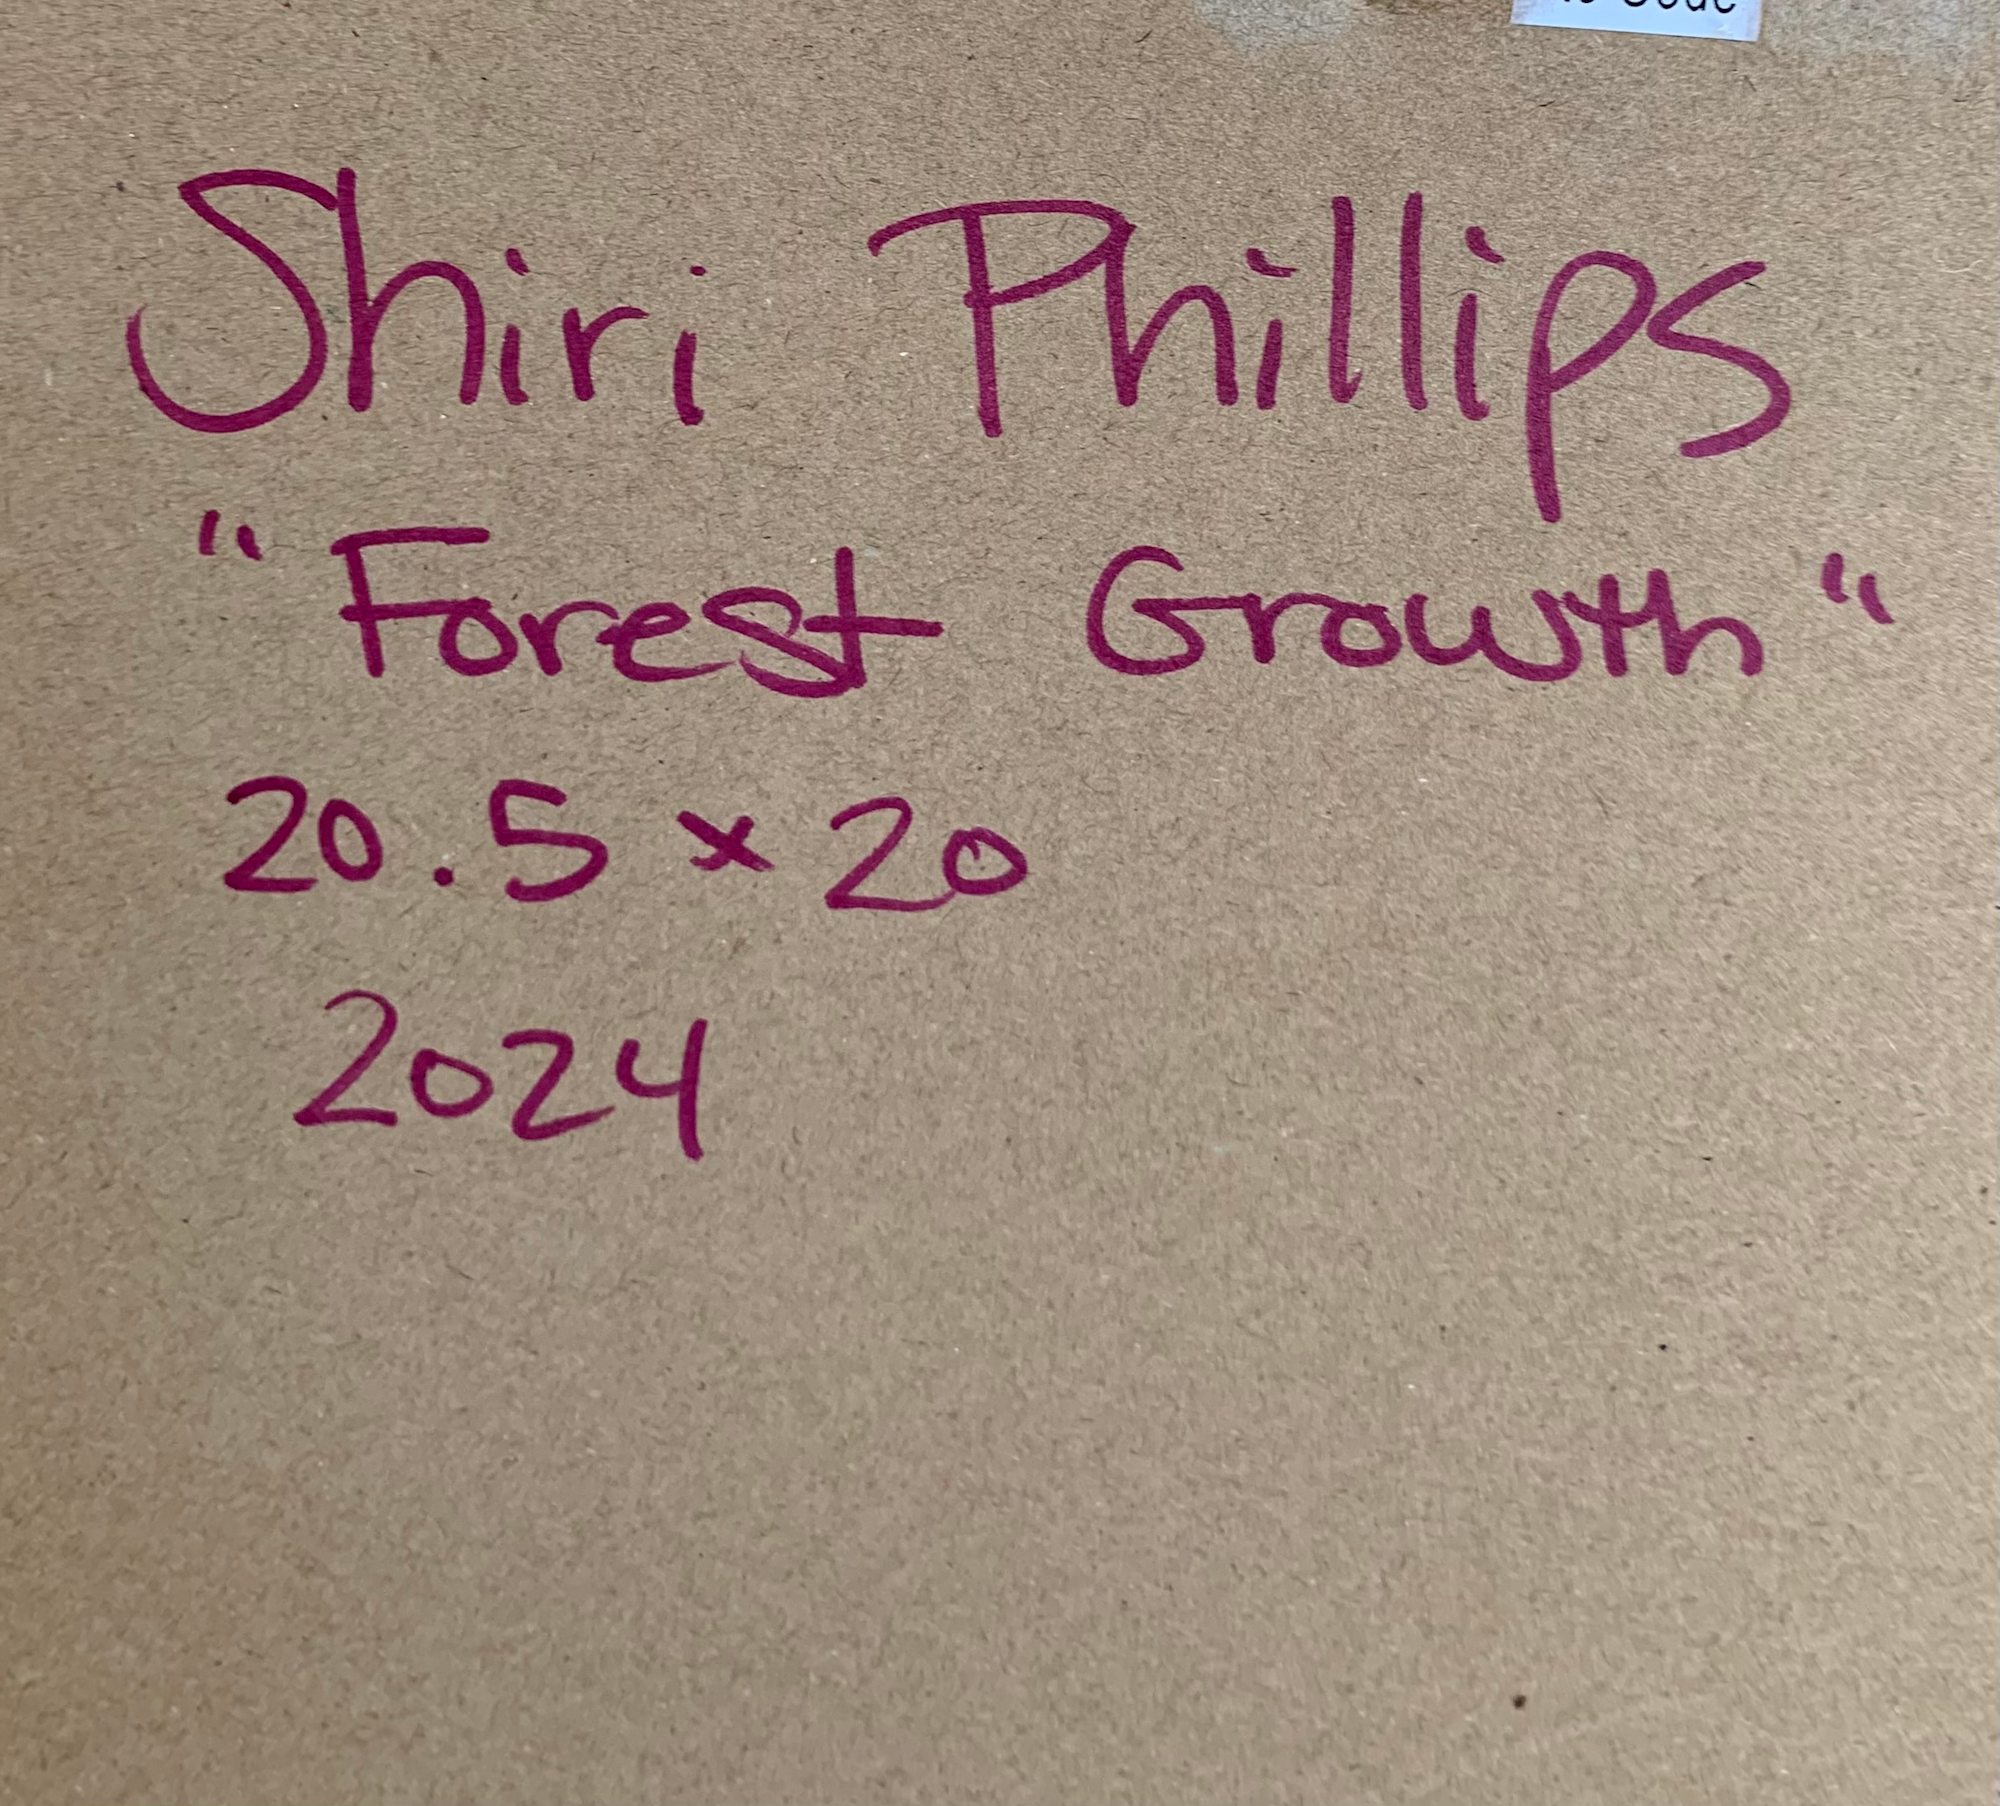 Code
Shiri Phillips
"Forest Growth"
20.5 x 20
2024